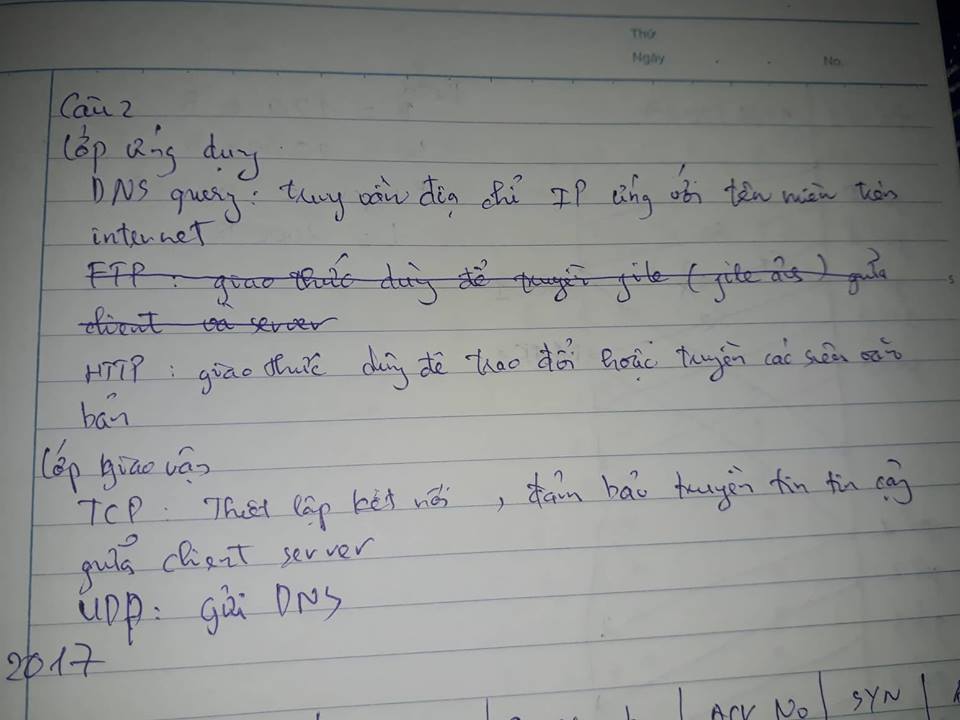 Thứ
Ngày . . No.
Câu 2
Lớp ứng dụng
DNS query: truy vấn địa chỉ IP ứng với tên miền trên
internet
FTP : giao thức dùng để truyền file (file ấs) giữa
client và server
HTTP : giao thức dùng để trao đổi hoặc truyền các siêu văn
bản
Lớp giao vận
TCP : Thiết lập kết nối , đảm bảo truyền tin tin cậy
giữa client server
UDP: gửi DNS
2017
ACK No SYN